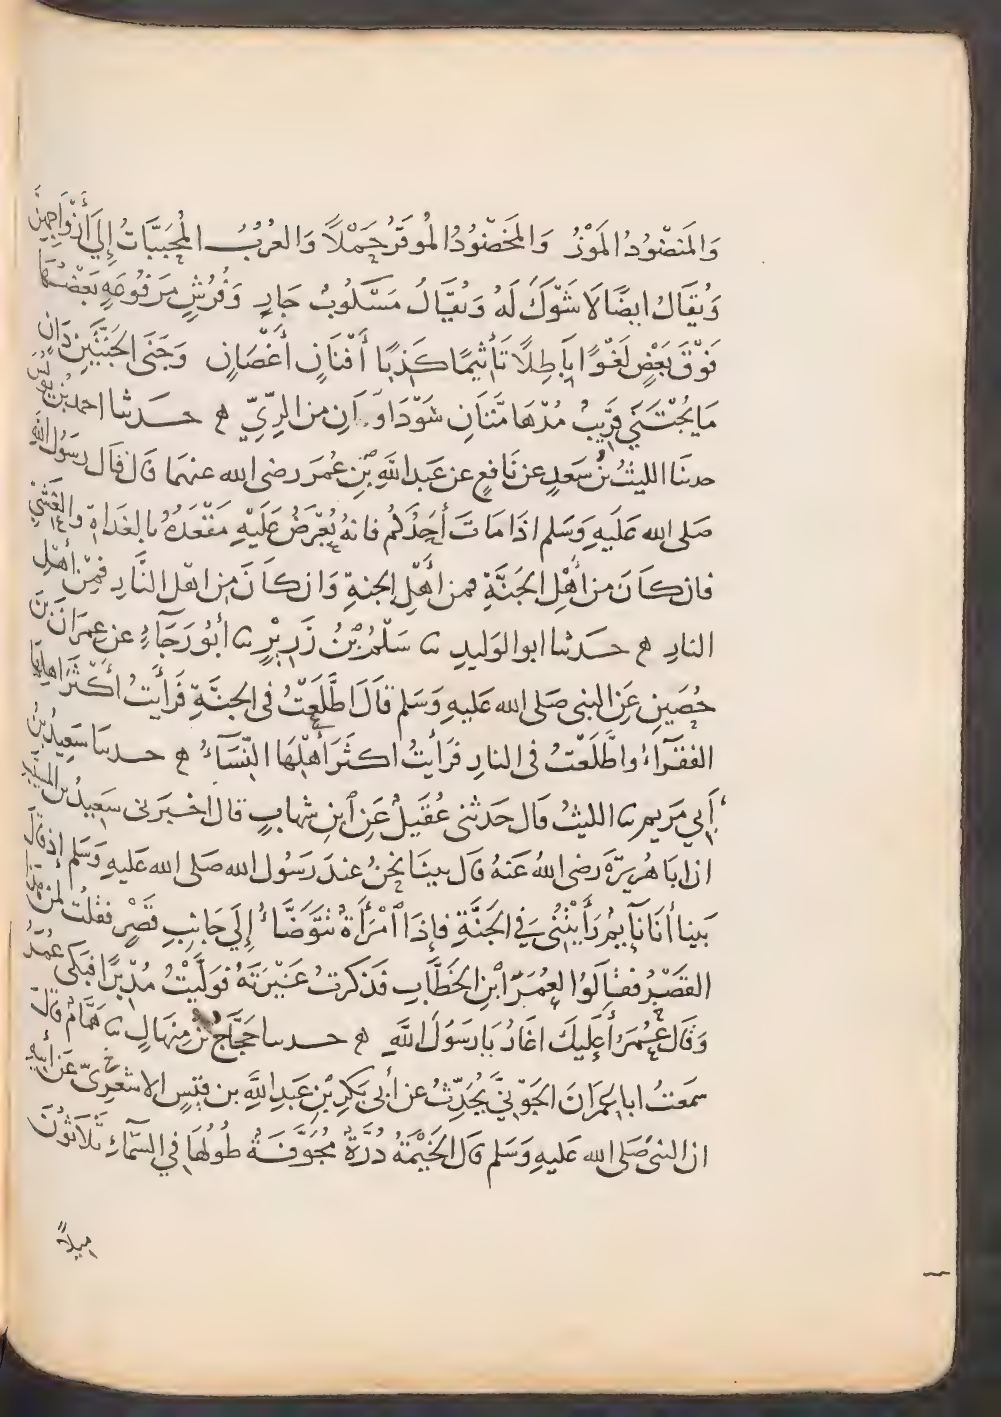 وَالمَنضُودُ المَوْزُ وَالمَخضُودُ المُوقَرُ حَمْلًا وَالعُرُبُ المُحَبَّبَاتُ إِلَى أَزْوَاجِهِنَّ
وَيُقَالُ ايضًا لَا شَوْكَ لَهُ وَيُقَالُ مَسْكُوبٌ جَارٍ وَفُرُشٍ مَرفُوعَةٍ بَعْضُهَا
فَوْقَ بَعْضٍ لَغْوًا بَاطِلًا تَأْثِيمًا كَذِبًا أَفْنَانٍ أَغْصَانٍ وَجَنَى الجَنَّتَيْنِ دَانٍ
مَا يُجْتَنَى قَرِيبٌ مُدْهَامَّتَانِ سَوْدَاوَانِ من الرِّيِّ ه حدثنا احمد بْنُ يُونُسَ
حدثنا الليثُ بْنُ سَعدٍ عن نَافِعٍ عن عَبدِ اللهِ بْنِ عُمَرَ رضى الله عنهما قَالَ قَالَ رَسُولُ اللهِ
صَلى الله عَلَيهِ وَسَلم اذَا مَاتَ أَحَدُكُم فانهُ يُعْرَضُ عَلَيْهِ مَقْعَدُهُ بالغَدَاةِ والعَشِيِّ
فان كَانَ من أَهْلِ الجَنَّةِ فمن اَهْلِ الجنةِ وَان كَانَ مِن اهْلِ النَّارِ فَمِن أَهْلِ
النارِ ه حدثنا ابو الوَليدِ سا سَلْمُ بْنُ زَرِيرٍ سا أَبُو رَجَاءٍ عن عِمرَانَ بن
حُصَينٍ عَنِ النبى صَلى الله عَليهِ وَسَلم قَالَ اطَّلَعْتُ فى الجَنَّةِ فَرَأَيْتُ أَكْثَرَ اهلِهَا
الفقَرَاءَ واطَّلَعْتُ فى النارِ فَرَأَيْتُ اكثَرَ أَهْلِهَا النِّسَاءَ ه حدسا سَعِيدُ بْنُ
أَبِي مَريم سا الليثُ قَال حَدثنى عُقَيلٌ عَنِ ابنِ شهابٍ قال اخبَرنى سَعِيدُ بن المسَيَّبِ
ان ابا هُرَيرَةَ رضى اللهُ عَنهُ قَال بينَا نحنُ عندَ رَسُول الله صَلى الله عَليهِ وَسَلم إِذ قَالَ
بَينا أَنَا نَائِمٌ رَأَيْتُنِى فِي الجَنَّةِ فإذَا امْرَأَةٌ تَتَوَضَّأُ إِلَى جَانِبِ قَصْرٍ فقُلْتُ لمن هذا
القَصْرُ فقالُوا لِعُمَرَ ابْنِ الخَطَّابِ فَذَكَرتُ غَيْرَتَهُ فَوَلَّيْتُ مُدْبِرًا فبَكَى عُمَرُ
وَقَالَ عُمَرُ أَعَلَيكَ اغَارُ يَا رَسُولَ اللَّهِ ه حدسا حَجَّاجُ بْنُ مِنهَالٍ سا هَمَّامٌ قَالَ
سَمَعتُ ابا عِمرَانَ الجَوْنِيَّ يُحَدِّثُ عن أَبِى بَكرِ بْنِ عَبدِ اللَّهِ بن قَيسٍ الاشعَرِىِّ عَن أَبِيهِ
ان النبىَّ صَلى الله عَليهِ وَسَلم قَالَ الخَيْمَةُ دُرَّةٌ مُجَوَّفَةٌ طُولُهَا فِي السَّمَاءِ ثَلَاثُونَ
مِيلًا